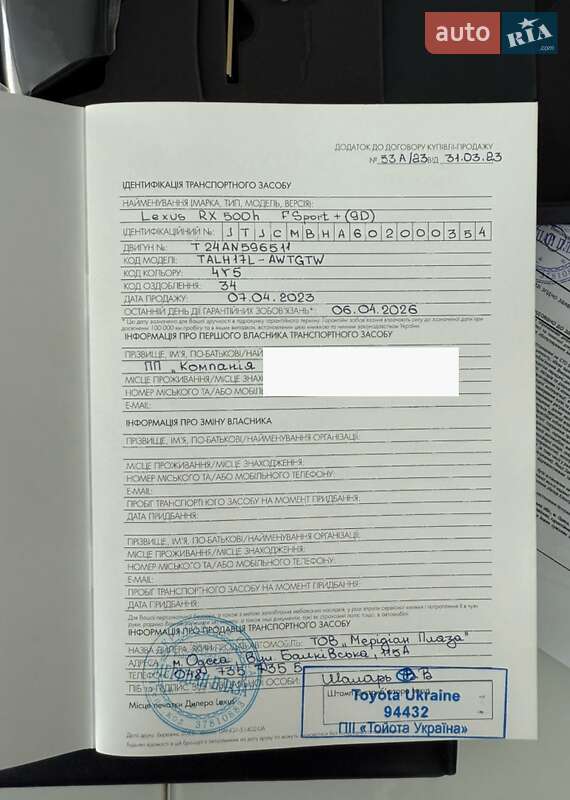 auto RIA .com
ДОДАТОК ДО ДОГОВОРУ КУПІВЛІ-ПРОДАЖУ
№ 53А/23 ВІД 31.03.23
ІДЕНТИФІКАЦІЯ ТРАНСПОРТНОГО ЗАСОБУ
НАЙМЕНУВАННЯ (МАРКА, ТИП, МОДЕЛЬ, ВЕРСІЯ):
Lexus RX 500h FSport + (9D)
ІДЕНТИФІКАЦІЙНИЙ №: JTJCMBHA602000354
ДВИГУН №: T24AN596511
КОД МОДЕЛІ: TALH17L-AWTGTW
КОД КОЛЬОРУ: 4Y5
КОД ОЗДОБЛЕННЯ: 34
ДАТА ПРОДАЖУ: 07.04.2023
ОСТАННІЙ ДЕНЬ ДІЇ ГАРАНТІЙНИХ ЗОБОВ'ЯЗАНЬ*: 06.04.2026
ІНФОРМАЦІЯ ПРО ПЕРШОГО ВЛАСНИКА ТРАНСПОРТНОГО ЗАСОБУ
ПРІЗВИЩЕ, ІМ'Я, ПО-БАТЬКОВІ/НАЙМ
ПП „Компанія
МІСЦЕ ПРОЖИВАННЯ/МІСЦЕ ЗНАХ
НОМЕР МІСЬКОГО ТА/АБО МОБІЛЬ
E-MAIL:
ІНФОРМАЦІЯ ПРО ЗМІНУ ВЛАСНИКА
ПРІЗВИЩЕ, ІМ'Я, ПО-БАТЬКОВІ/НАЙМЕНУВАННЯ ОРГАНІЗАЦІЇ:
МІСЦЕ ПРОЖИВАННЯ/МІСЦЕ ЗНАХОДЖЕННЯ:
НОМЕР МІСЬКОГО ТА/АБО МОБІЛЬНОГО ТЕЛЕФОНУ:
E-MAIL:
ПРОБІГ ТРАНСПОРТНОГО ЗАСОБУ НА МОМЕНТ ПРИДБАННЯ:
ДАТА ПРИДБАННЯ:
ПРІЗВИЩЕ, ІМ'Я, ПО-БАТЬКОВІ/НАЙМЕНУВАННЯ ОРГАНІЗАЦІЇ:
МІСЦЕ ПРОЖИВАННЯ/МІСЦЕ ЗНАХОДЖЕННЯ:
НОМЕР МІСЬКОГО ТА/АБО МОБІЛЬНОГО ТЕЛЕФОНУ:
E-MAIL:
ПРОБІГ ТРАНСПОРТНОГО ЗАСОБУ НА МОМЕНТ ПРИДБАННЯ:
ДАТА ПРИДБАННЯ:
ІНФОРМАЦІЯ ПРО ПРОДАВЦЯ ТРАНСПОРТНОГО ЗАСОБУ
НАЗВА ДИЛЕРА, ЯКИЙ ПРОДАВ АВТОМОБІЛЬ: ТОВ „Мерідіан Плаза"
АДРЕСА: м. Одеса, Вул Балківська,
ТЕЛЕФОН: (048) 735 735 5
37810883
Місце печатки Дилера Lexus
Toyota Ukraine
94432
ПІІ «Тойота Україна»